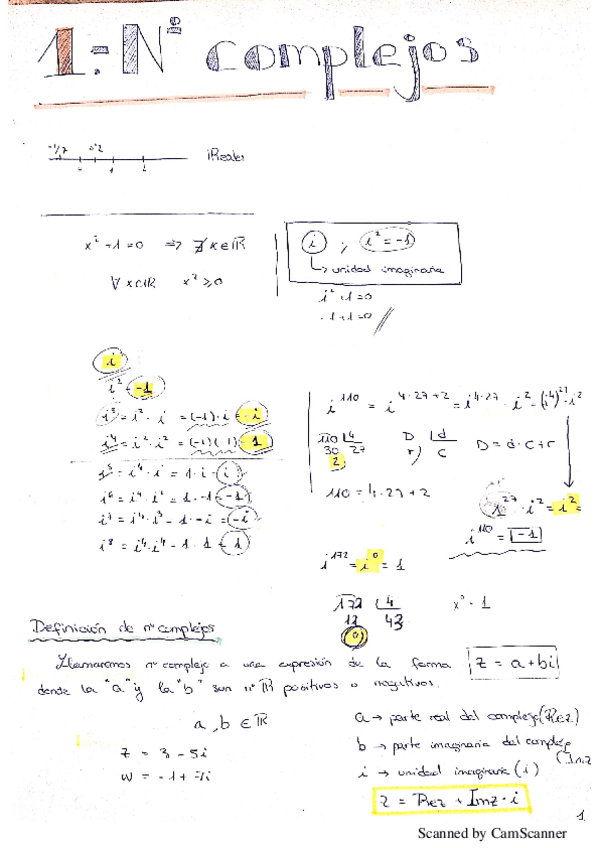 1.- Nº complejos
-1/2 0'2
0 1 2
iReales
x² + 1 = 0 ⇒ ∄ x ∈ ℝ
∀ x ∈ ℝ x² ≥ 0
i ; i² = -1
↳ unidad imaginaria
i² + 1 = 0
-1 + 1 = 0 //
i
i² = -1
i³ = i² · i = (-1) · i = -i
i⁴ = i² · i² = (-1)(-1) = 1
i⁵ = i⁴ · i = 1 · i = i
i⁶ = i⁴ · i² = 1 · -1 = -1
i⁷ = i⁴ · i³ = 1 · -i = -i
i⁸ = i⁴ · i⁴ = 1 · 1 = 1
i¹¹⁰ = i⁴·²⁷⁺² = i⁴·²⁷ · i² = (i⁴)²⁷ · i²
110 | 4
30 27
2
D | d
r) c
D = d · c + r
110 = 4 · 27 + 2
1²⁷ · i² = i² =
i¹¹⁰ = -1
i¹⁷² = i⁰ = 1
172 | 4
12 43
0
x⁰ = 1
Definición de nº complejos
Llamaremos nº complejo a una expresión de la forma z = a + bi
donde la "a" y la "b" son nº ℝ positivos o negativos.
a, b ∈ ℝ
z = 3 - 5i
w = -1 + 7i
a → parte real del complejo (Re z)
b → parte imaginaria del complejo
(Im z
i → unidad imaginaria (i)
z = Re z + Im z · i
1
Scanned by CamScanner